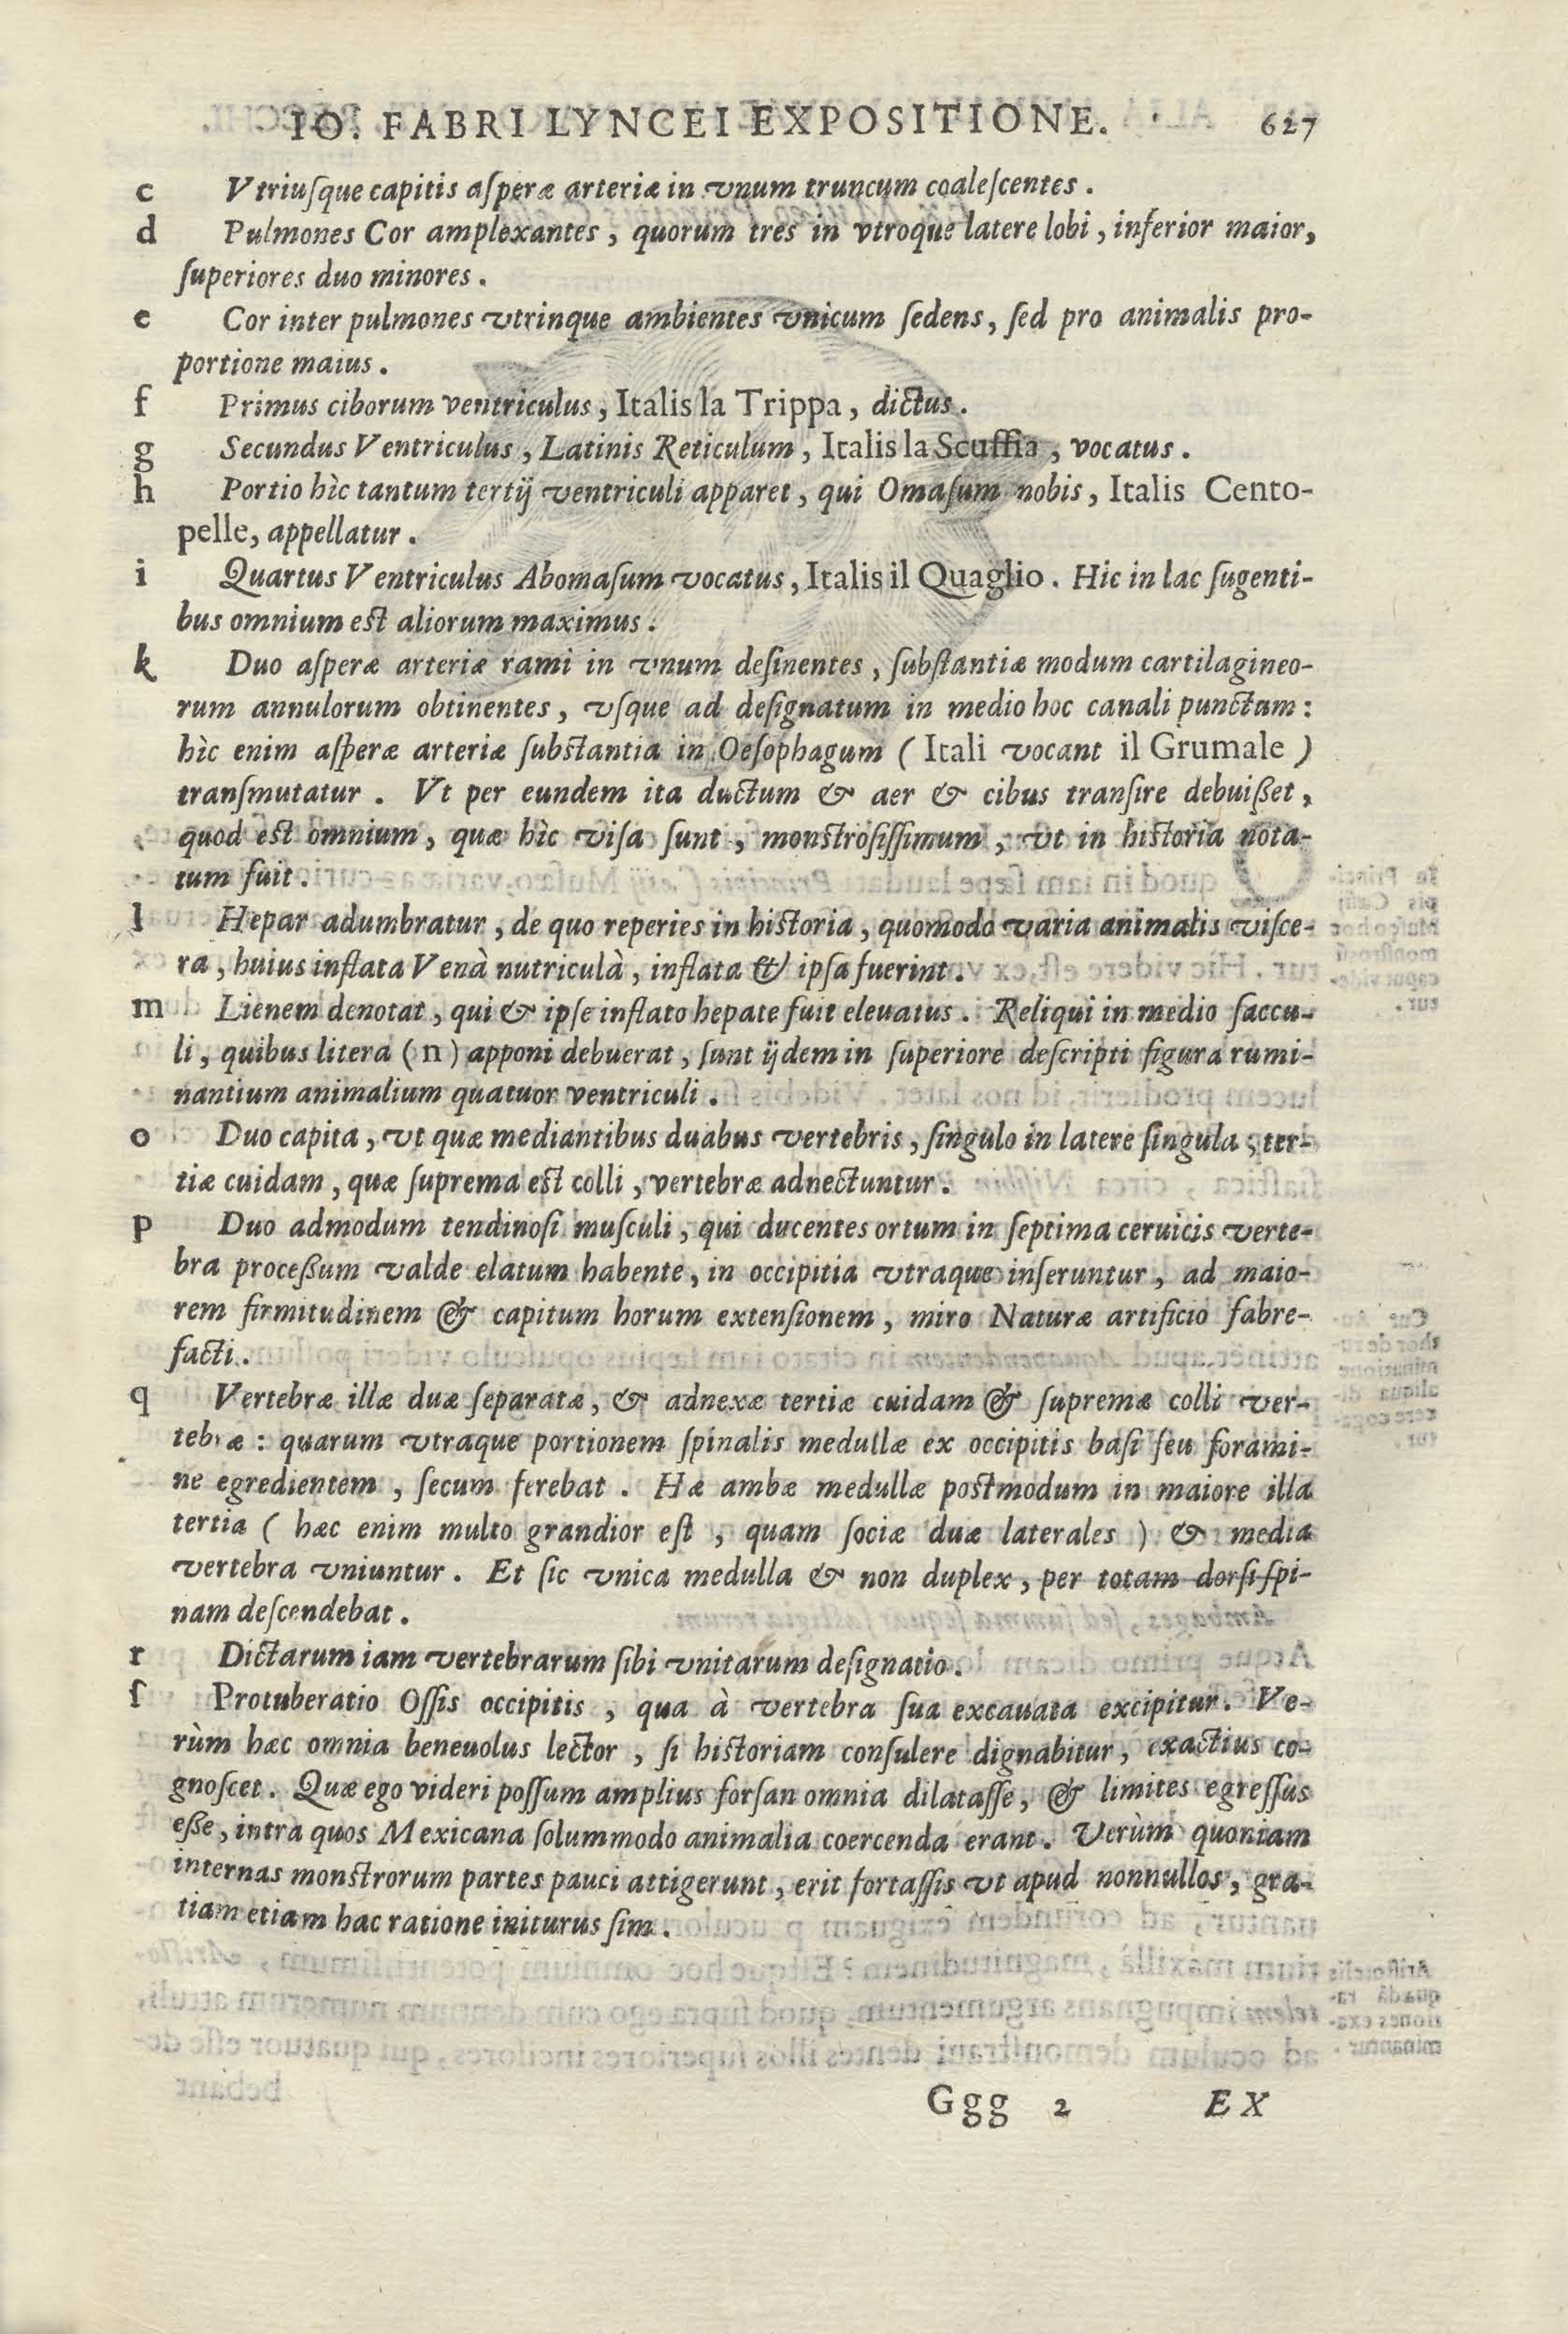 IO. FABRI LYNCEI EXPOSITIONE. 627
c Vtriuſque capitis aſperæ arteriæ in vnum truncum coaleſcentes.
d Pulmones Cor amplexantes, quorum tres in vtroque latere lobi, inferior maior,
ſuperiores duo minores.
e Cor inter pulmones vtrinque ambientes vnicum ſedens, ſed pro animalis pro-
portione maius.
f Primus ciborum ventriculus, Italis la Trippa, dictus.
g Secundus Ventriculus, Latinis Reticulum, Italis la Scuffia, vocatus.
h Portio hìc tantum tertij ventriculi apparet, qui Omaſum nobis, Italis Cento-
pelle, appellatur.
i Quartus Ventriculus Abomaſum vocatus, Italis il Quaglio. Hic in lac ſugenti-
bus omnium est aliorum maximus.
k Duo aſperæ arteriæ rami in vnum deſinentes, ſubſtantiæ modum cartilagineo-
rum annulorum obtinentes, vſque ad deſignatum in medio hoc canali punctum:
hìc enim aſperæ arteriæ ſubstantia in Oeſophagum (Itali vocant il Grumale)
tranſmutatur. Vt per eundem ita ductum & aer & cibus tranſire debuißet,
quod est omnium, quæ hìc viſa ſunt, monstroſiſſimum, vt in historia nota-
tum fuit.
l Hepar adumbratur, de quo reperies in historia, quomodo varia animalis viſce-
ra, huius inflata Venà nutriculà, inflata & ipſa fuerint.
m Lienem denotat, qui & ipſe inflato hepate fuit eleuatus. Reliqui in medio ſaccu-
li, quibus litera (n) apponi debuerat, ſunt ijdem in ſuperiore deſcripti figura rumi-
nantium animalium quatuor ventriculi.
o Duo capita, vt quæ mediantibus duabus vertebris, ſingulo in latere ſingula, ter-
tiæ cuidam, quæ ſuprema est colli, vertebræ adnectuntur.
p Duo admodum tendinoſi muſculi, qui ducentes ortum in ſeptima ceruicis verte-
bra proceßum valde elatum habente, in occipitia vtraque inſeruntur, ad maio-
rem firmitudinem & capitum horum extenſionem, miro Naturæ artificio fabre-
facti.
q Vertebræ illæ duæ ſeparatæ, & adnexæ tertiæ cuidam & ſupremæ colli ver-
tebræ: quarum vtraque portionem ſpinalis medullæ ex occipitis baſi ſeu forami-
ne egredientem, ſecum ferebat. Hæ ambæ medullæ postmodum in maiore illa
tertia (hæc enim multo grandior eſt, quam ſociæ duæ laterales) & media
vertebra vniuntur. Et ſic vnica medulla & non duplex, per totam dorſi ſpi-
nam deſcendebat.
r Dictarum iam vertebrarum ſibi vnitarum deſignatio.
ſ Protuberatio Oſſis occipitis, qua à vertebra ſua excauata excipitur. Ve-
rùm hæc omnia beneuolus lector, ſi historiam conſulere dignabitur, exactius co-
gnoſcet. Quæ ego videri poſſum amplius forſan omnia dilataſſe, & limites egreſſus
eße, intra quos Mexicana ſolummodo animalia coercenda erant. Verùm quoniam
internas monstrorum partes pauci attigerunt, erit fortaſſis vt apud nonnullos, gra-
tiam etiam hac ratione initurus ſim.
Ggg 2 EX